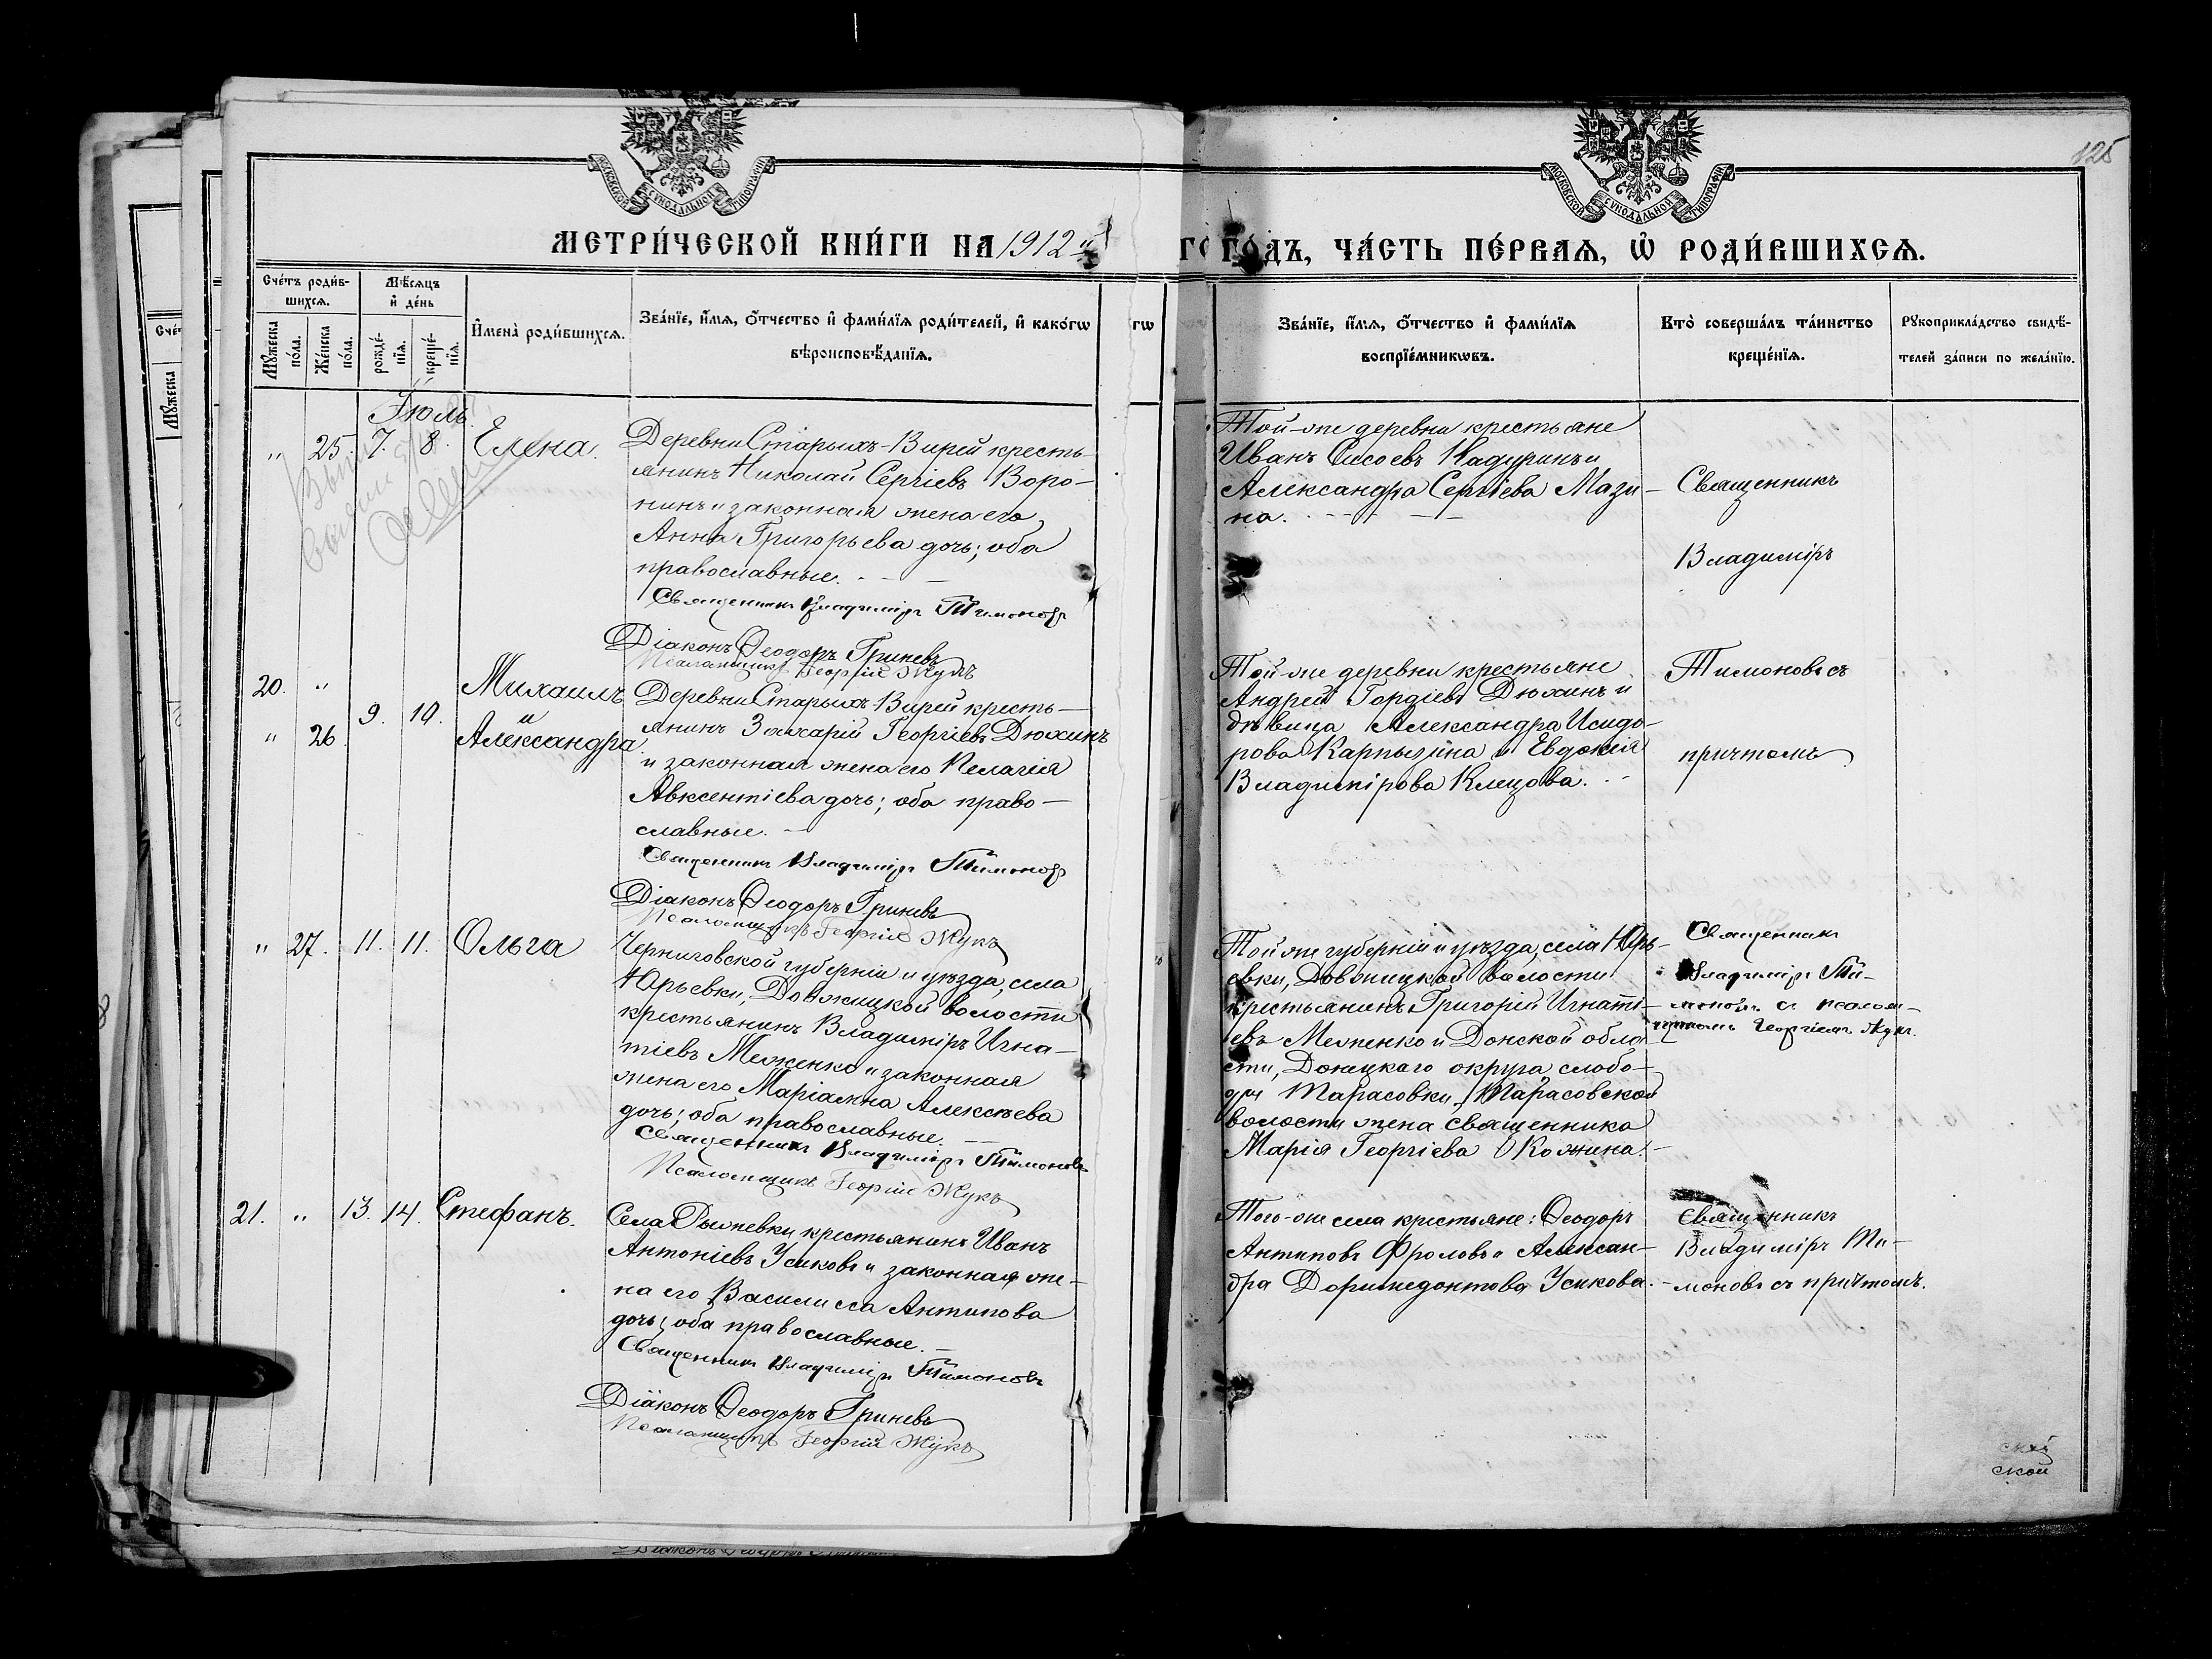 125
МОСКОВСКОЙ СѴНОДАЛЬНОЙ ТИПОГРАФІИ
МОСКОВСКОЙ СѴНОДАЛЬНОЙ ТИПОГРАФІИ
МЕТРИ́ЧЕСКОЙ КНИ́ГИ НА 1912 й
ГО́ДЪ, ЧА́СТЬ ПЕ́РВАѦ, Ѽ РОДИ́ВШИХСѦ.
Счéтъ роди́в-
шихсѧ.
Мꙋ́жеска
по́ла.
Же́нска
по́ла.
Мѣ́сѧцъ
и҆ де́нь
рожде́-
нїѧ.
креще́-
нїѧ.
И҆мена̀ роди́вшихсѧ.
Зва́нїе, и҆́мѧ, ѻ҆́тчество и҆ фами́лїѧ роди́телей, и҆ како́гѡ
вѣроисповѣ́данїѧ.
Зва́нїе, и҆́мѧ, ѻ҆́тчество и҆ фами́лїѧ
воспрїе́мникѡвъ.
Кто̀ соверша́лъ та́инство
креще́нїѧ.
Рꙋкоприкла́дство свидѣ́-
телей за́писи по жела́нїю.
Іюль
„ 25. 7. 8. Елена.
Деревни Старыхъ-Вирей кресть-
янинъ Николай Сергіевъ Воро-
нинъ и законная жена его
Анна Григорьева дочь; оба
православные.
Священникъ Владиміръ Тимоновъ
Діаконъ Ѳеодоръ Гриневъ
Псаломщикъ Георгій Жукъ
Той-же деревни крестьяне
Иванъ Сысоевъ Кадуринъ и
Александра Сергіева Мази-
на.
Священникъ
Владиміръ
Тимоновъ съ
причтомъ
20. „ 9. 10. Михаилъ
и
„ 26 Александра.
Деревни Старыхъ-Вирей кресть-
янинъ Захарій Георгіевъ Дюжинъ
и законная жена его Пелагія
Авксентіева дочь; оба право-
славные.
Священникъ Владиміръ Тимоновъ
Діаконъ Ѳеодоръ Гриневъ
Псаломщикъ Георгій Жукъ
Той-же деревни крестьяне
Андрей Гордіевъ Дюжинъ и
дѣвица Александра Исидо-
рова и Евдокія
Владимірова Клецова.
„ 27. 11. 11. Ольга
Черниговской губерніи и уѣзда, села
Юрьевки, Довжицкой волости
крестьянинъ Владиміръ Игна-
тіевъ Меженко и законная
жена его Маріамна Алексѣева
дочь; оба православные.
Священникъ Владиміръ Тимоновъ
Псаломщикъ Георгій Жукъ
Той же губерніи и уѣзда, села Юрь-
евки, Довжицкой волости
крестьянинъ Григорій Игнаті-
евъ Меженко и Донской обла-
сти, Донецкаго округа, слобо-
ды Тарасовки, Тарасовской
волости жена священника
Марія Георгіева Кожина.
Священникъ
Владиміръ Ти-
моновъ съ псалом-
щикомъ Георгіемъ Жукъ.
21. „ 13. 14. Стефанъ.
Села крестьянинъ Иванъ
Антоніевъ Усиковъ и законная же-
на его Василисса Антипова
дочь; оба православные.
Священникъ Владиміръ Тимоновъ
Діаконъ Ѳеодоръ Гриневъ
Псаломщикъ Георгій Жукъ
Того-же села крестьяне: Ѳеодоръ
Антиповъ Фроловъ и Алексан-
дра Доримедонтова Усикова.
Священникъ
Владиміръ Ти-
моновъ съ причтомъ.
ской